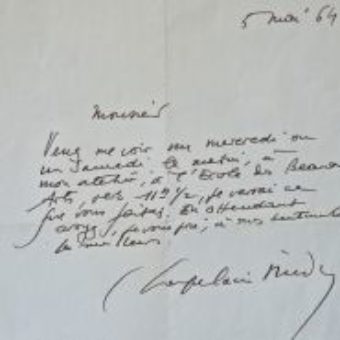 5 mai 64
Monsieur
Venez me voir un mercredi ou
un samedi le matin, à
mon atelier, à l'Ecole des Beaux
Arts, vers 11 h 1/2, je verrai ce
que vous faites. En attendant
croyez, je vous prie, à mes sentiments
Chapelain Midy